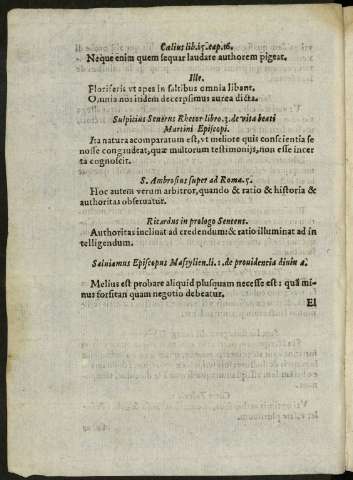 Cælius lib. 15. cap. 16.
Neque enim quem sequar laudare authorem pigeat.
Ille.
Floriferis vt apes in saltibus omnia libant,
Omnia nos itidem decerpsimus aurea dicta.
Sulpicius Seuerus Rhetor libro. 3. de vita beati
Martini Episcopi.
Ita natura acomparatum est, vt meliore quis conscientia se
nosse congaudeat, quæ multorum testimonijs, non esse incer
ta cognoscit.
S. Ambrosius super ad Roma. 5.
Hoc autem verum arbitror, quando & ratio & historia &
authoritas obseruatur.
Ricardus in prologo Sentens.
Authoritas inclinat ad credendum: & ratio illuminat ad in
telligendum.
Saluianus Episcopus Massylien. li. 1. de prouidencia diuina.
Melius est probare aliquid plusquam necesse est: quã mi-
nus forsitan quam negotio debeatur.
El